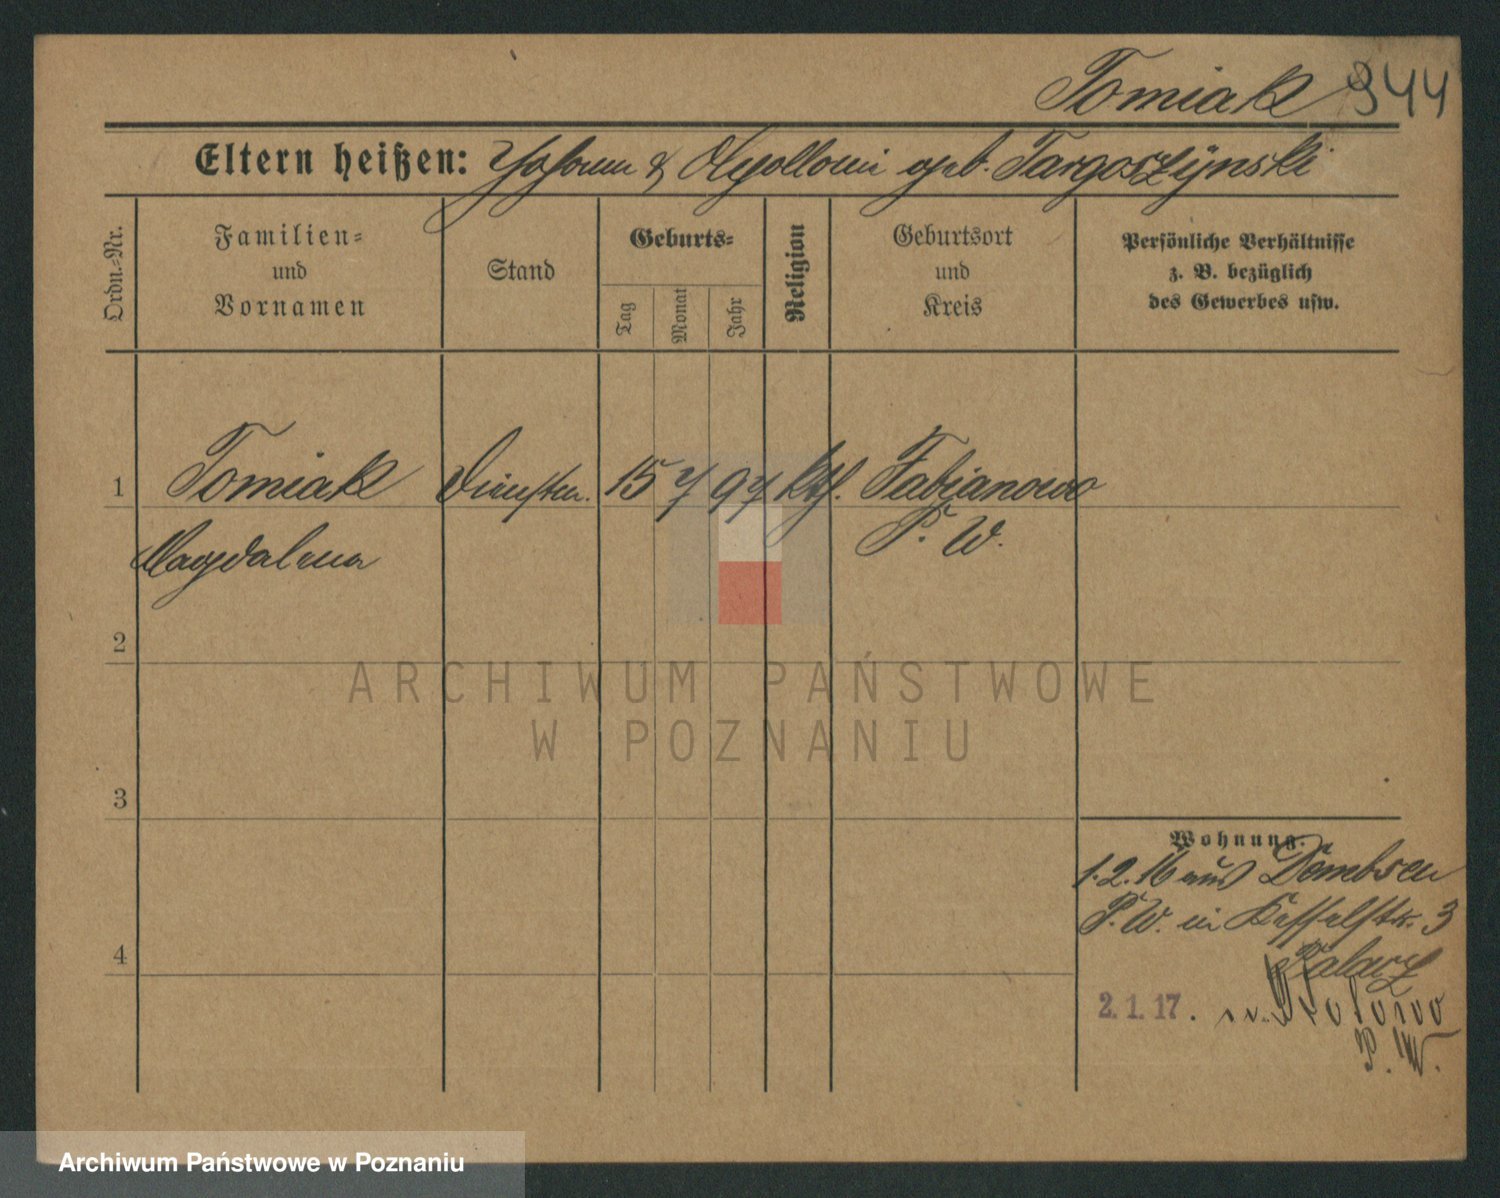 Tomiak 944
Eltern heißen: Johann & Apollonia geb. Targoszÿnski
Ordn.-Nr.
Familien-
und
Vornamen
Stand
Geburts-
Tag
Monat
Jahr
Religion
Geburtsort
und
Kreis
Persönliche Verhältnisse
z. B. bezüglich
des Gewerbes usw.
1 Tomiak Dienstm. 15 7 97 kth. Fabjanowo
Magdalena P. W.
2
3
4
Wohnung.
1.2.16 aus Dembsen
P.W. in Kesselstr. 3
Talarz
2.1.17. n.
P. W.
ARCHIWUM PAŃSTWOWE
W POZNANIU
Archiwum Państwowe w Poznaniu